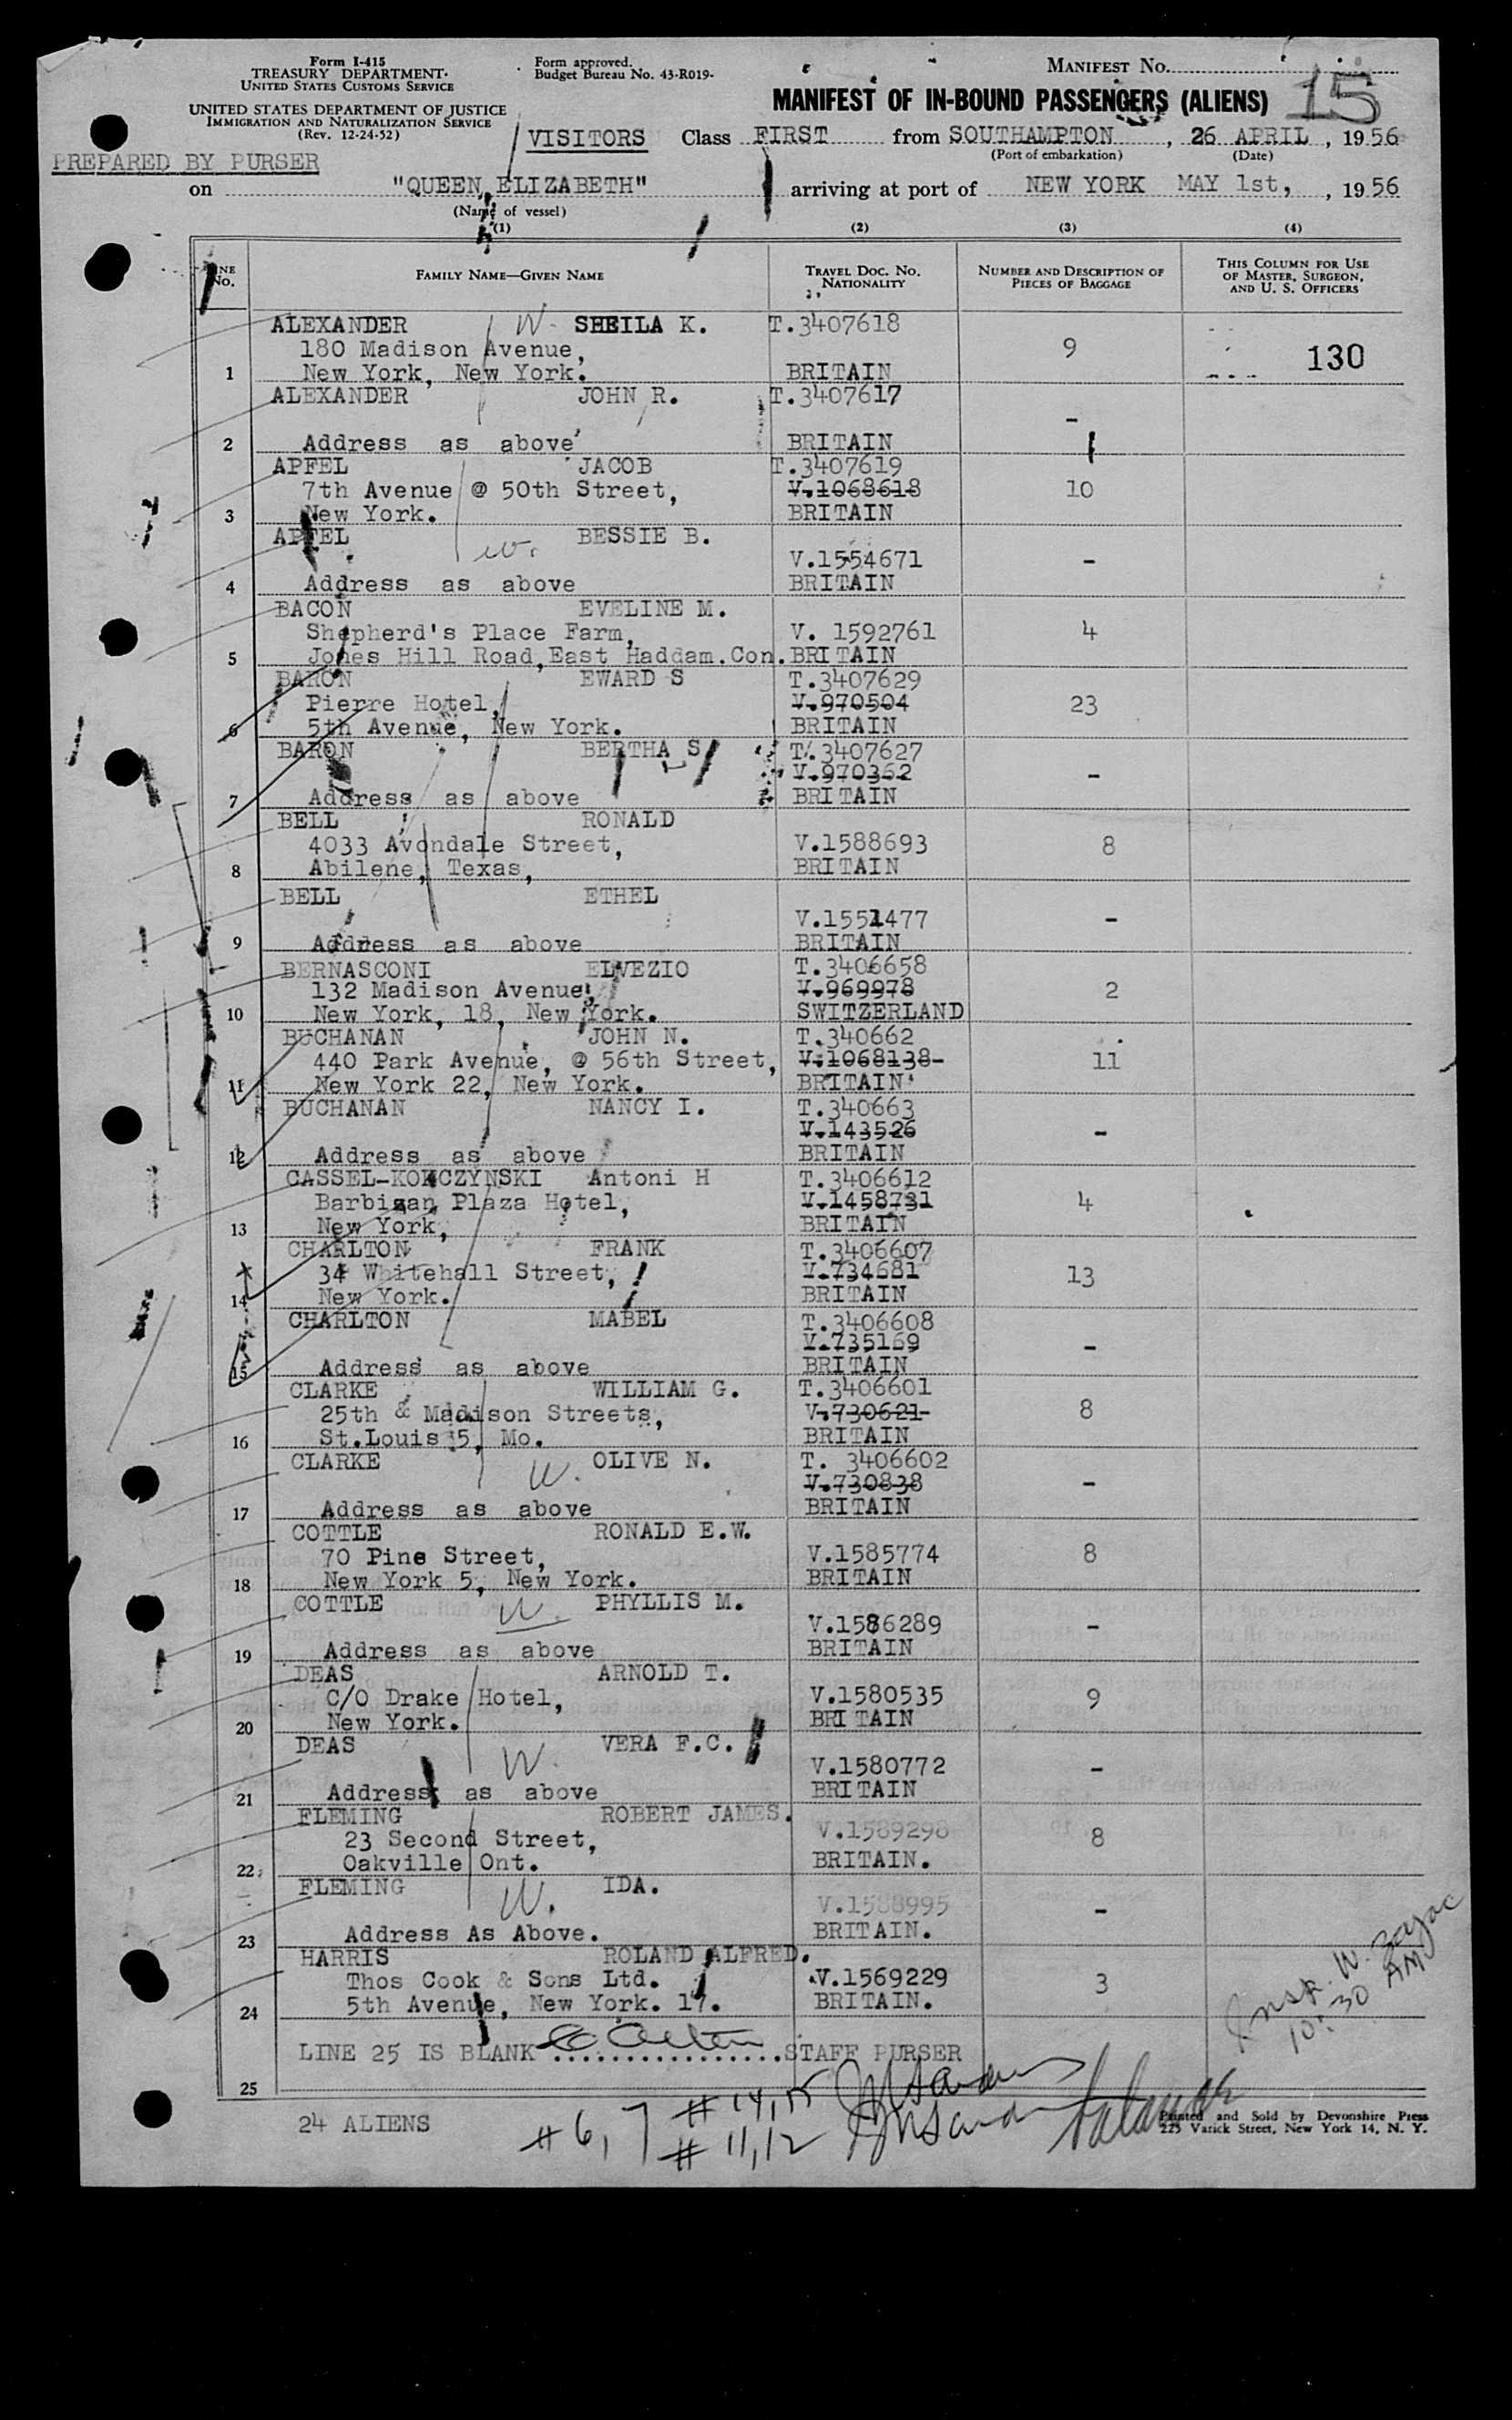 Form I-415
TREASURY DEPARTMENT
UNITED STATES CUSTOMS SERVICE
Form approved.
Budget Bureau No. 43-R019-
MANIFEST No. 15
UNITED STATES DEPARTMENT OF JUSTICE
IMMIGRATION AND NATURALIZATION SERVICE
(Rev. 12-24-52)
MANIFEST OF IN-BOUND PASSENGERS (ALIENS)
VISITORS Class FIRST from SOUTHAMPTON, 26 APRIL, 1956
(Port of embarkation) (Date)
PREPARED BY PURSER
on "QUEEN ELIZABETH" arriving at port of NEW YORK MAY 1st, , 1956
(Name of vessel)
(1) (2) (3) (4)
LINE No. FAMILY NAME—GIVEN NAME TRAVEL DOC. NO. NATIONALITY NUMBER AND DESCRIPTION OF PIECES OF BAGGAGE THIS COLUMN FOR USE OF MASTER, SURGEON, AND U. S. OFFICERS
ALEXANDER W. SHEILA K. T.3407618
180 Madison Avenue, 9 130
1 New York, New York. BRITAIN
ALEXANDER JOHN R. T.3407617
-
2 Address as above BRITAIN
APFEL JACOB T.3407619
7th Avenue @ 50th Street, V.1068618 10
3 New York. BRITAIN
APFEL W. BESSIE B.
V.1554671 -
4 Address as above BRITAIN
BACON EVELINE M.
Shepherd's Place Farm, V. 1592761 4
5 Jones Hill Road,East Haddam.Con. BRITAIN
BARON EWARD S T.3407629
Pierre Hotel, V.970504 23
6 5th Avenue, New York. BRITAIN
BARON BERTHA S T.3407627
V.970362 -
7 Address as above BRITAIN
BELL RONALD
4033 Avondale Street, V.1588693 8
8 Abilene, Texas, BRITAIN
BELL ETHEL
V.1551477 -
9 Address as above BRITAIN
BERNASCONI ELVEZIO T.3406658
132 Madison Avenue, V.969978 2
10 New York, 18, New York. SWITZERLAND
BUCHANAN JOHN N. T.340662
440 Park Avenue, @ 56th Street, V.1068138 11
11 New York 22, New York. BRITAIN
BUCHANAN NANCY I. T.340663
V.143526 -
12 Address as above BRITAIN
CASSEL-KONCZYNSKI Antoni H T.3406612
Barbizan Plaza Hotel, V.1458731 4
13 New York, BRITAIN
CHARLTON FRANK T.3406607
34 Whitehall Street, V.734681 13
14 New York. BRITAIN
CHARLTON MABEL T.3406608
V.735169 -
15 Address as above BRITAIN
CLARKE WILLIAM G. T.3406601
25th & Madison Streets, V.730621 8
16 St.Louis 5, Mo. BRITAIN
CLARKE W. OLIVE N. T. 3406602
V.730838 -
17 Address as above BRITAIN
COTTLE RONALD E.W.
70 Pine Street, V.1585774 8
18 New York 5, New York. BRITAIN
COTTLE W. PHYLLIS M.
V.1586289 -
19 Address as above BRITAIN
DEAS ARNOLD T.
C/O Drake Hotel, V.1580535 9
20 New York. BRITAIN
DEAS W. VERA F.C.
V.1580772 -
21 Address as above BRITAIN
FLEMING ROBERT JAMES.
23 Second Street, V.1589298 8
22 Oakville Ont. BRITAIN.
FLEMING W. IDA.
V.1588995 -
23 Address As Above. BRITAIN.
HARRIS ROLAND ALFRED.
Thos Cook & Sons Ltd. V.1569229 3
24 5th Avenue, New York. 17. BRITAIN.
Insp. W.
10:30 AM
LINE 25 IS BLANK ................STAFF PURSER
25
24 ALIENS
# 6, 7 # 14, 15
# 11, 12
Printed and Sold by Devonshire Press
225 Varick Street, New York 14, N. Y.